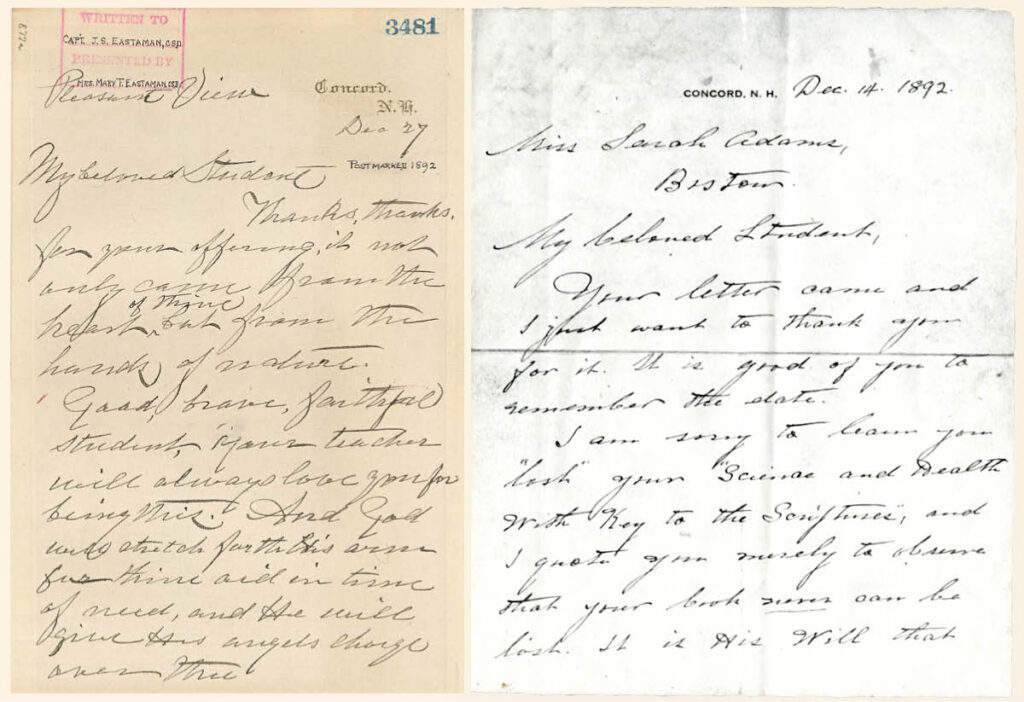 WRITTEN TO
CAPT. J. S. EASTAMAN, C.S.D.
PRESENTED BY
MRS. MARY T. EASTAMAN, CSD.
3481
Pleasant View
Concord,
N.H.
Dec 27
POSTMARKED 1892
My beloved Student
Thanks, thanks,
for your offering, it not
only came from the
heart of thine, but from the
hands of nature.
Good, brave, faithful
student, your teacher
will always love you for
being this. And God
will stretch forth His arm
for thine aid in time
of need, and He will
give His angels charge
over thee
CONCORD, N. H. Dec. 14. 1892.
Miss Sarah Adams,
Boston.
My beloved Student,
Your letter came and
I just want to thank you
for it. It is good of you to
remember the date.
I am sorry to learn you
"lost" your "Science and Health
With Key to the Scriptures", and
I quote you merely to observe
that your book never can be
lost. It is His Will that